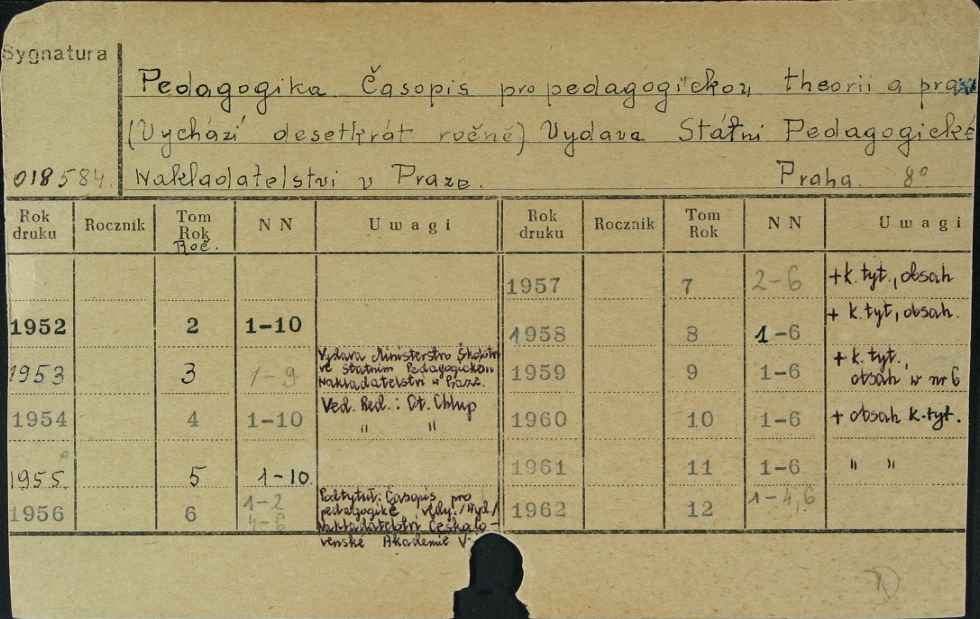 Sygnatura
Pedagogika. Časopis pro pedagogickou theorii a praxi
(Vychází desetkrát ročně) Vydava Státní Pedagogické
018584. Nakladatelstvi v Praze. Praha. 8°
Rok druku Rocznik Tom Rok Roč. N N Uwagi Rok druku Rocznik Tom Rok N N Uwagi
1957 7 2-6 + k. tyt., obsah
1952 2 1-10 1958 8 1-6 + k. tyt, obsah.
1953 3 1-9 Vydava Ministerstvo Školství
ve Statním Pedagogickém
nakladatelství v Praze.
1959 9 1-6 + k. tyt.,
obsah w nr 6
1954 4 1-10 Ved. Red.: Ot. Chlup 1960 10 1-6 + obsah k. tyt.
" "
1955. 5 1-10. 1961 11 1-6 " "
1956 6 1-2
4-6
Podtytuł: Časopis pro
pedagogiké vědy. /Vyd/
Nakladatelství Českolo-
venské Akademie V.
1962 12 1-4, 6